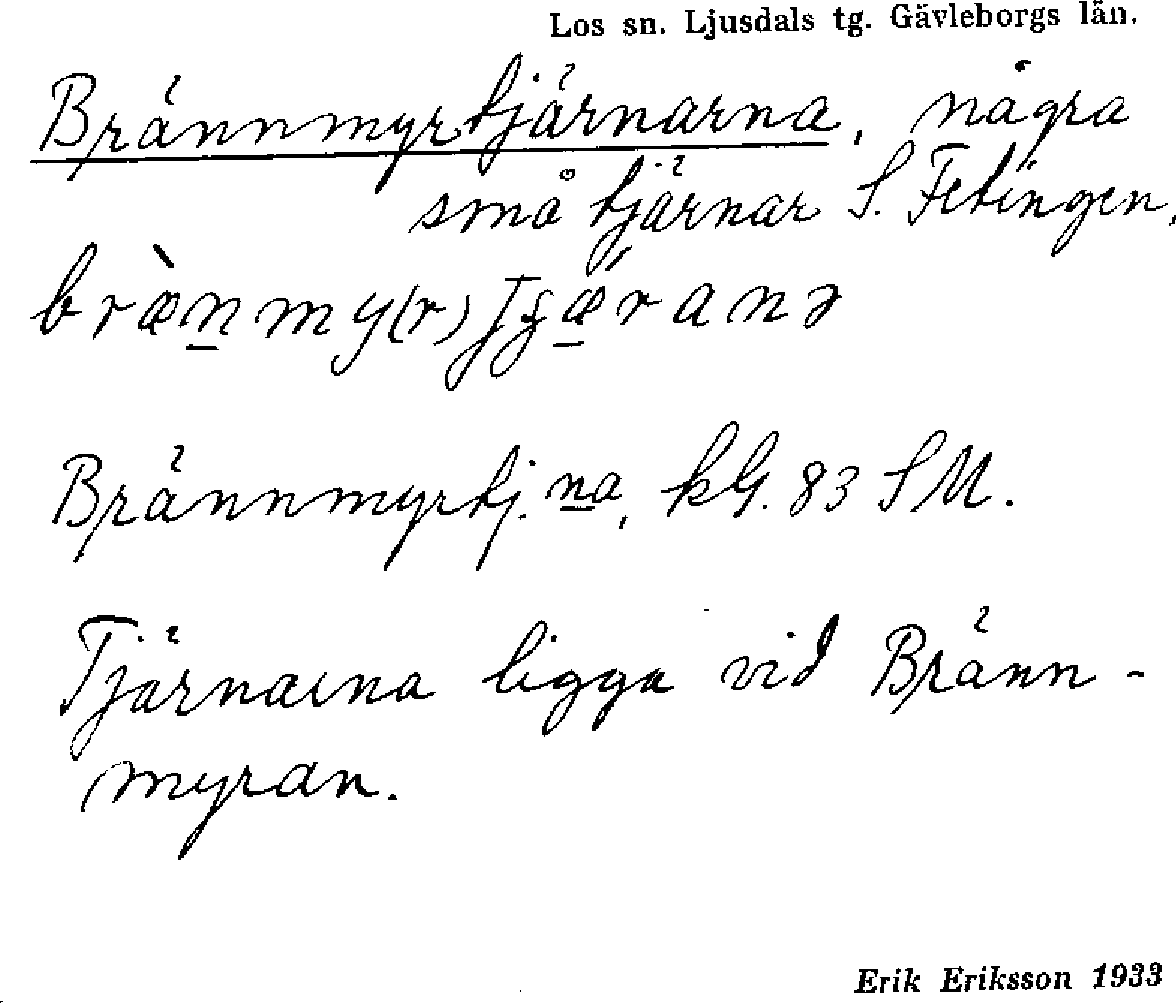 Los sn. Ljusdals tg. Gävleborgs län.
Brännmyrtjärnarna, några
små tjärnar S. Fetingen,
Brännmyrtj.na, kG. 83 SM.
Tjärnarna ligga vid Bränn-
myran.
Erik Eriksson 1933